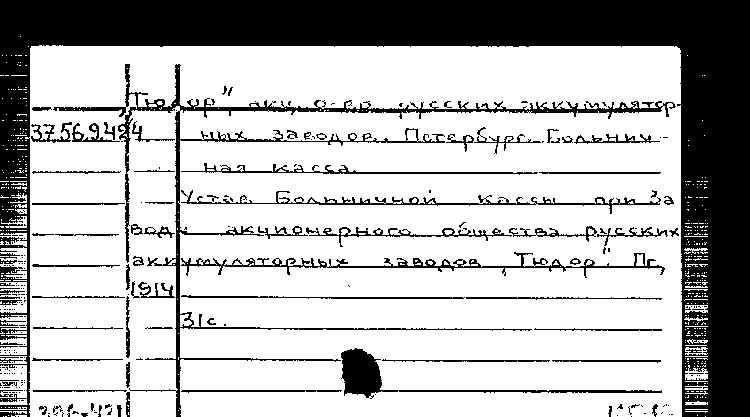 „Тюдор", акц. о-во русских аккумулятор-
37.56.9.494 ных заводов. Петербург. Больнич-
ная касса.
Устав Больничной кассы при За
воде акционерного общества русских
аккумуляторных заводов „Тюдор". Пг.,
1914
31с.